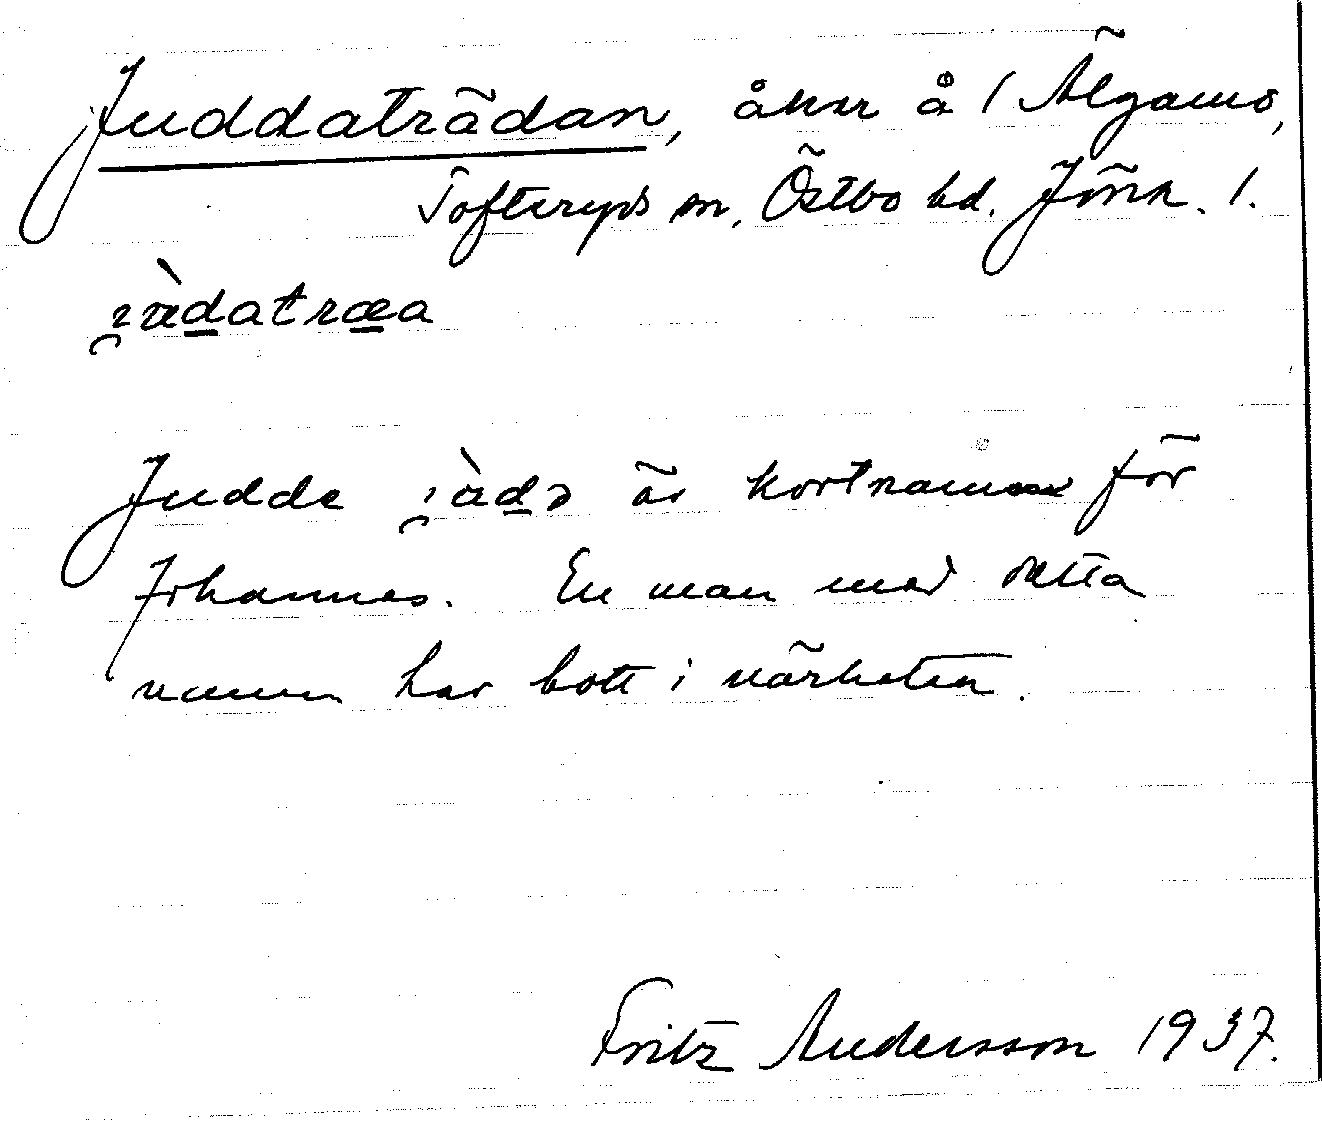 Juddaträdan, åker å / Älgamo,
Tofteryds sn, Östbo hd. Jönk. l.
jàdatræa
Judde jàdə är kortnamn för
Johannes. En man med detta
namn har bott i närheten.
Fritz Andersson 1937.